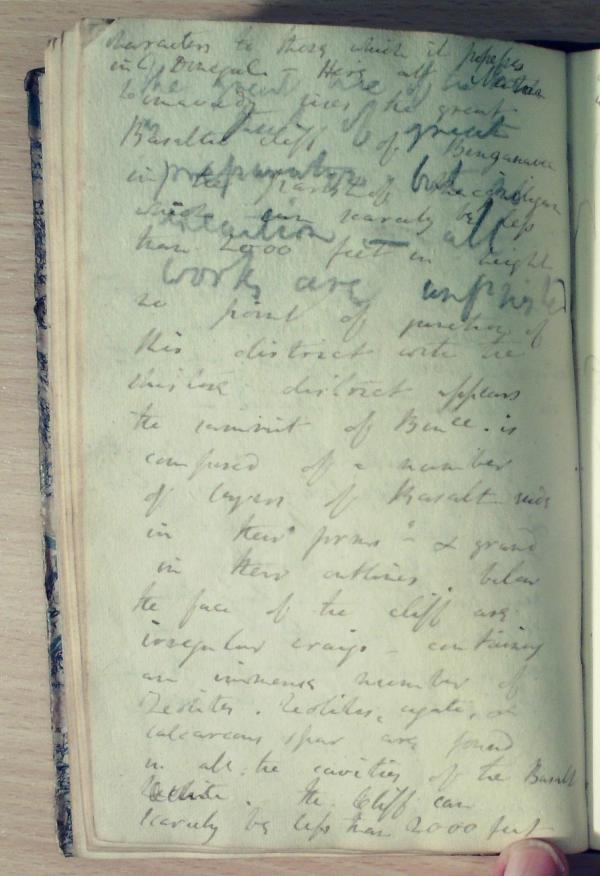 characters to those which it possesses
in C. Donegal – Here all the Neath
the great use of
immediately rises the great
that of great
Basaltic cliff of Bengavanen
in the parish of
preparation but
which can scarcely be less
execution – all
than 2000 feet in height
works are unfinished
no point of junction of
this district with the
district appears
the summit of Bence. is
composed of a number
of layers of Basalt rude
in their forms & grand
in their outlines. below
the face of the cliff are
irregular crags – containing
an immense number of
Zeolites. Zeolites, agate, or
calcareous spar are found
in all the cavities of the Basalt
The Cliff can
scarcely be less than 2000 feet